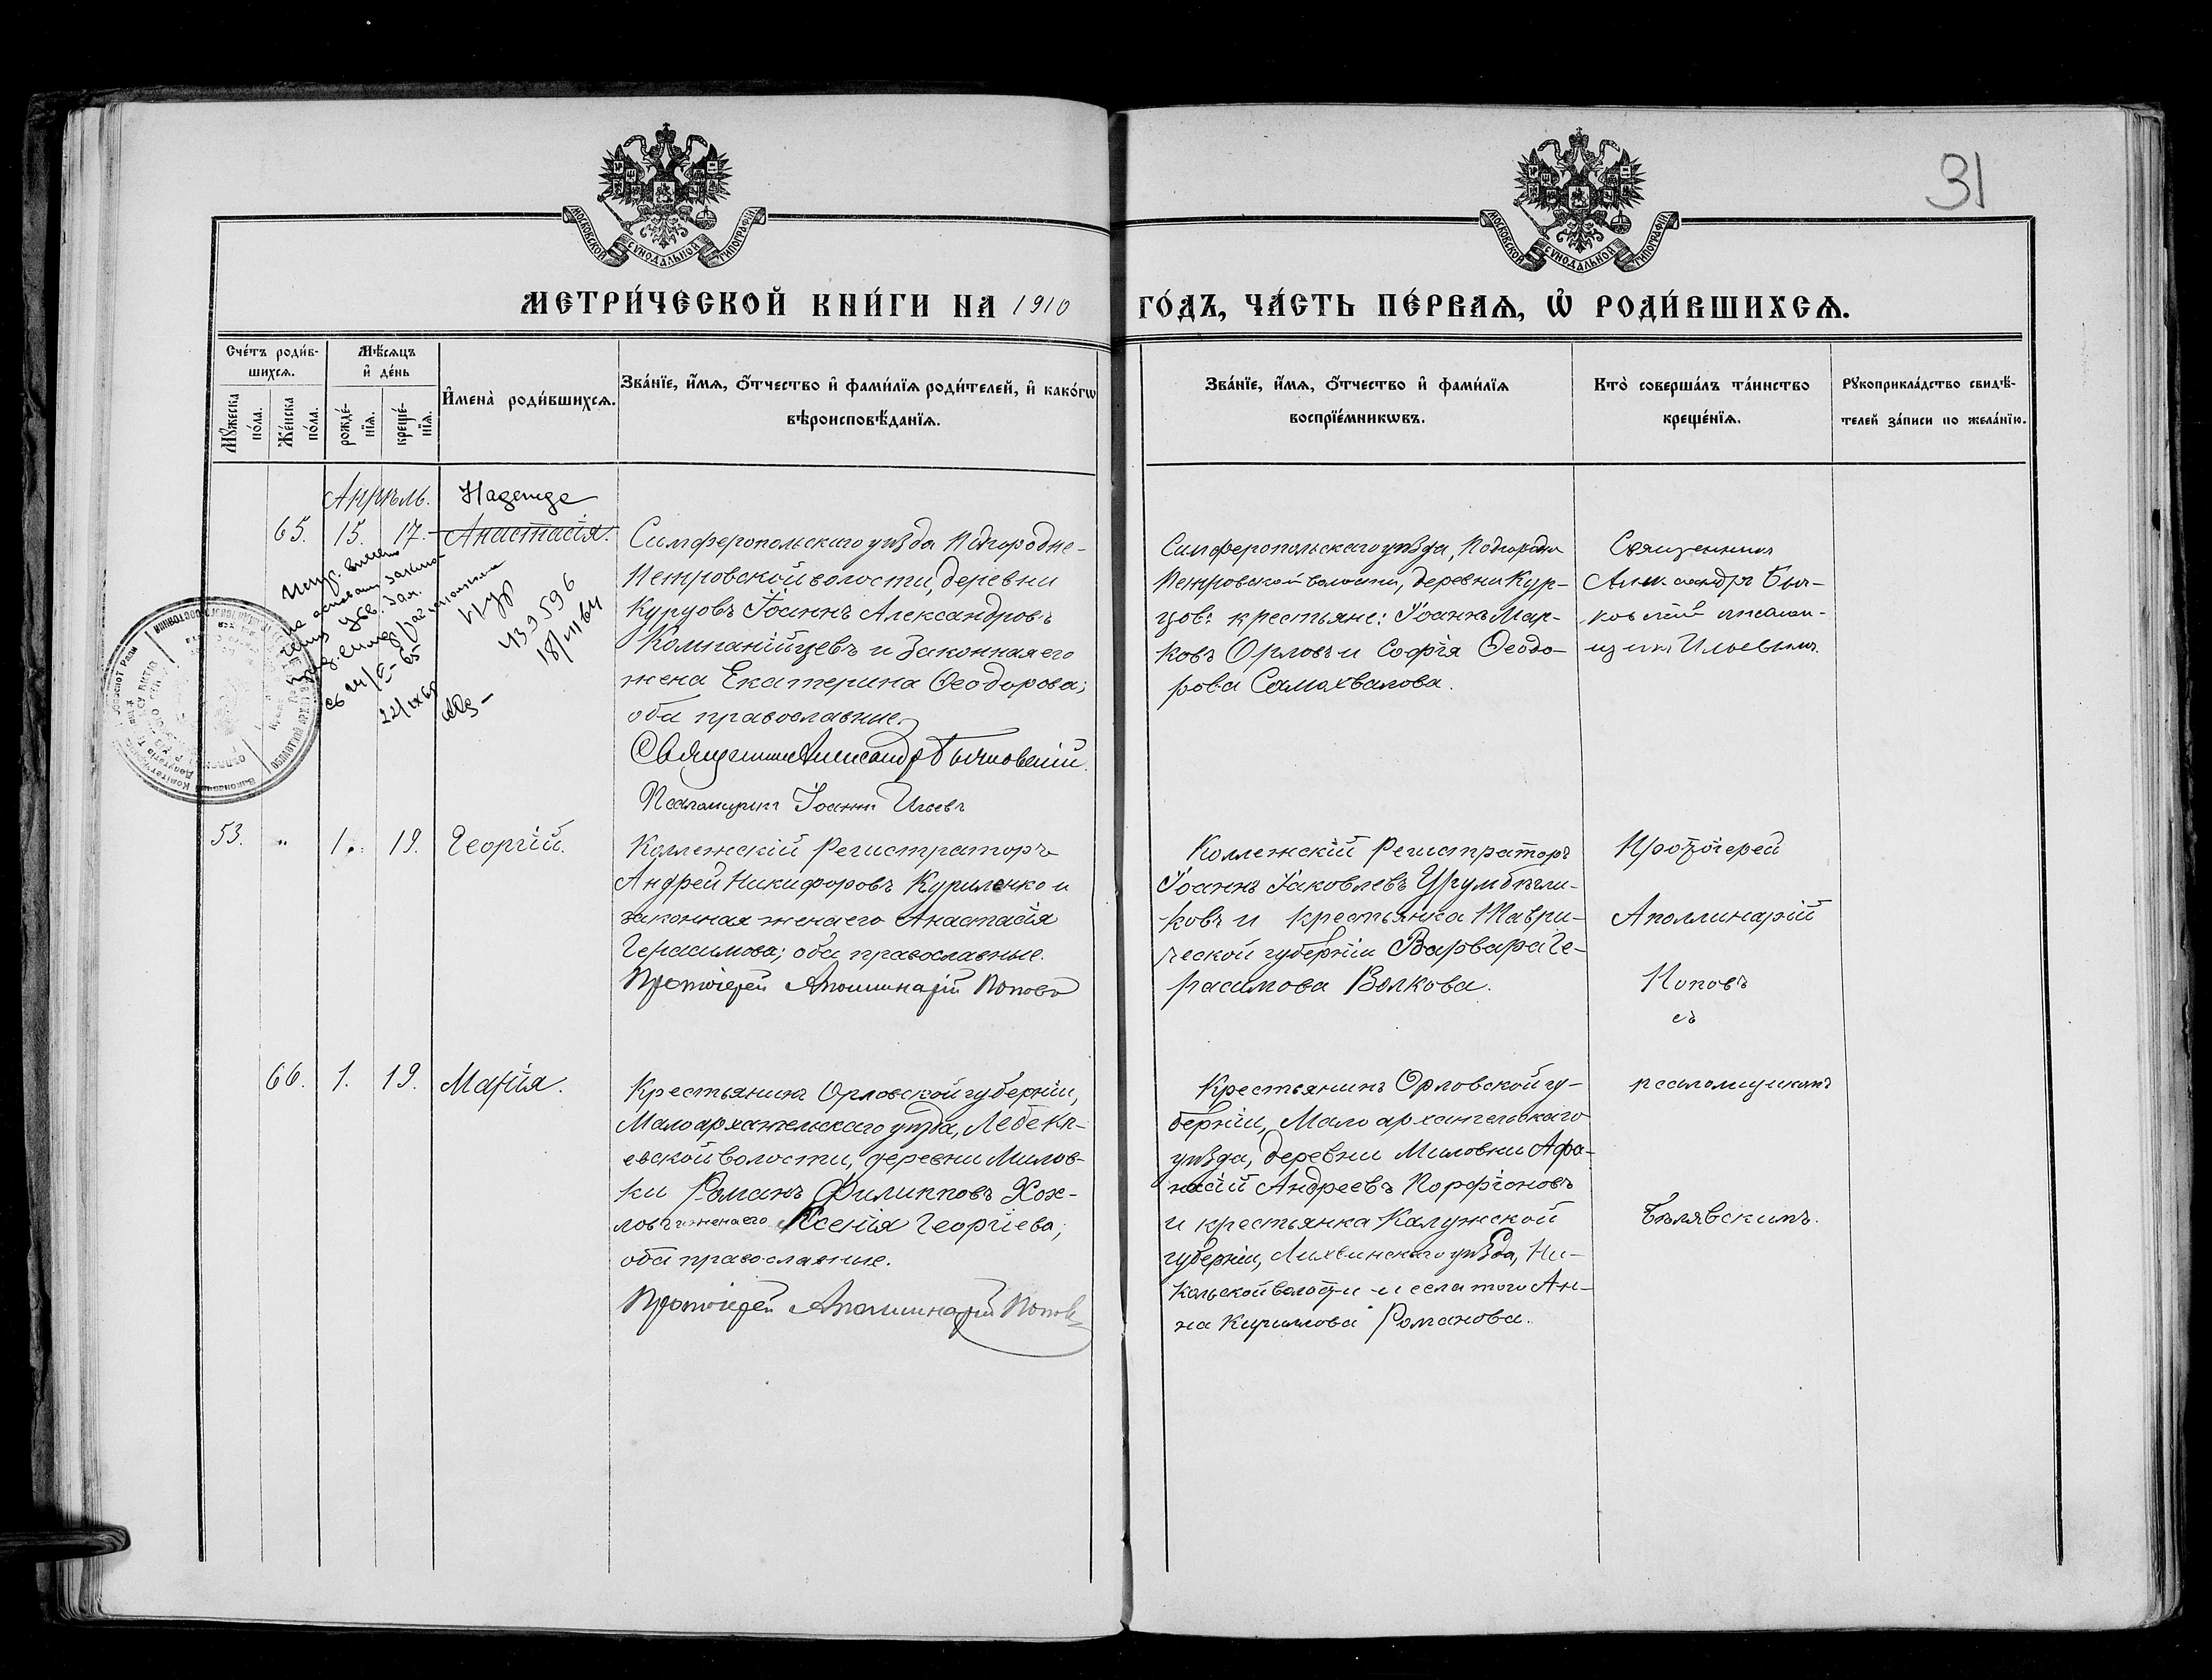 31
МОСКОВСКОЙ СѴНОДАЛЬНОЙ ТИПОГРАФІИ
МОСКОВСКОЙ СѴНОДАЛЬНОЙ ТИПОГРАФІИ
МЕТРИ́ЧЕСКОЙ КНИ́ГИ НА 1910 ГО́ДЪ, ЧА́СТЬ ПЕ́РВАѦ, Ѡ҆ РОДИ́ВШИХСѦ.
Сче́тъ роди́в-
шихсѧ.
Мꙋ́жеска
по́ла.
Же́нска
по́ла.
Мѣ́сѧцъ
и҆ де́нь
рожде́-
нїѧ.
креще́-
нїѧ.
И҆мена̀ роди́вшихсѧ.
Зва́нїе, и҆́мѧ, ѻ҆́тчество и҆ фами́лїѧ роди́телей, и҆ како́гѡ
вѣроисповѣ́данїѧ.
Зва́нїе, и҆́мѧ, ѻ҆́тчество и҆ фами́лїѧ
воспрїе́мникѡвъ.
Кто̀ соверша́лъ та́инство
креще́нїѧ.
Рꙋкоприкла́дство свидѣ́-
телей за́писи по жела́нїю.
Апрѣль.
Надежда
65. 15. 17. Анастасія.
439596
18/VII 64
22/IX 65
Симферопольскаго уѣзда Подгородне-
Петровской волости, деревни
Курцовъ Іоаннъ Александровъ
Компанійцевъ и законная его
жена Екатерина Ѳеодорова;
оба православные.
Священникъ Александръ Бычковскій.
Псаломщикъ Іоаннъ Ильевъ
Симферопольскаго уѣзда, Подгородне
Петровской волости, деревни Кур-
цовъ крестьяне: Іоаннъ Мар-
ковъ Орловъ и Софія Ѳеодо-
рова Самохвалова.
Священникъ
Александръ Быч-
ковскій
Ильевымъ.
53. " 1. 19. Георгій.
Коллежскій Регистраторъ
Андрей Никифоровъ Куриленко и
законная жена его Анастасія
Герасимова; оба православные.
Протоіерей Аполлинарій Поповъ
Коллежскій Регистраторъ
Іоаннъ Іаковлевъ Урумбѣгли-
ковъ и крестьянка Таври-
ческой губерніи Варвара Ге-
расимова Волкова.
Протоіерей
Аполлинарій
Поповъ
съ
66. 1. 19. Марія.
Крестьянинъ Орловской губерніи,
Малоархангельскаго уѣзда, Лебедк-
евской волости, деревни Милов-
ки Романъ Филипповъ Хох-
ловъ и жена его Ксенія Георгіева;
оба православные.
Протоіерей Аполлинарій Поповъ
Крестьянинъ Орловской гу-
берніи, Малоархангельскаго
уѣзда, деревни Миловки Афа-
насій Андреевъ Порфіоновъ
и крестьянка Калужской
губерніи, Лихвинскаго уѣзда, Ни-
кольской волости и села того Ан-
на Кириллова Романова.
псаломщикомъ
Бѣлявскимъ.